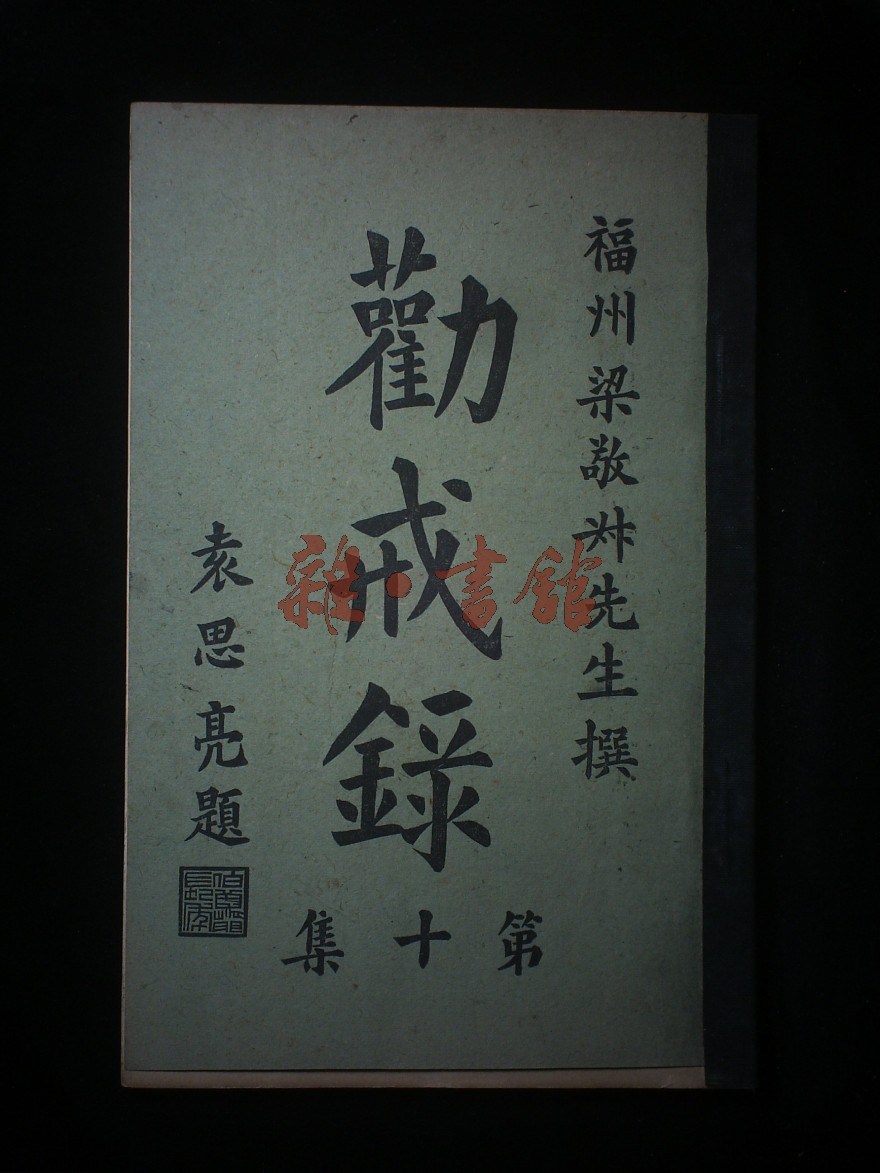 福州梁敬尗先生撰
勸戒錄
第十集
袁思亮題
雜·書館